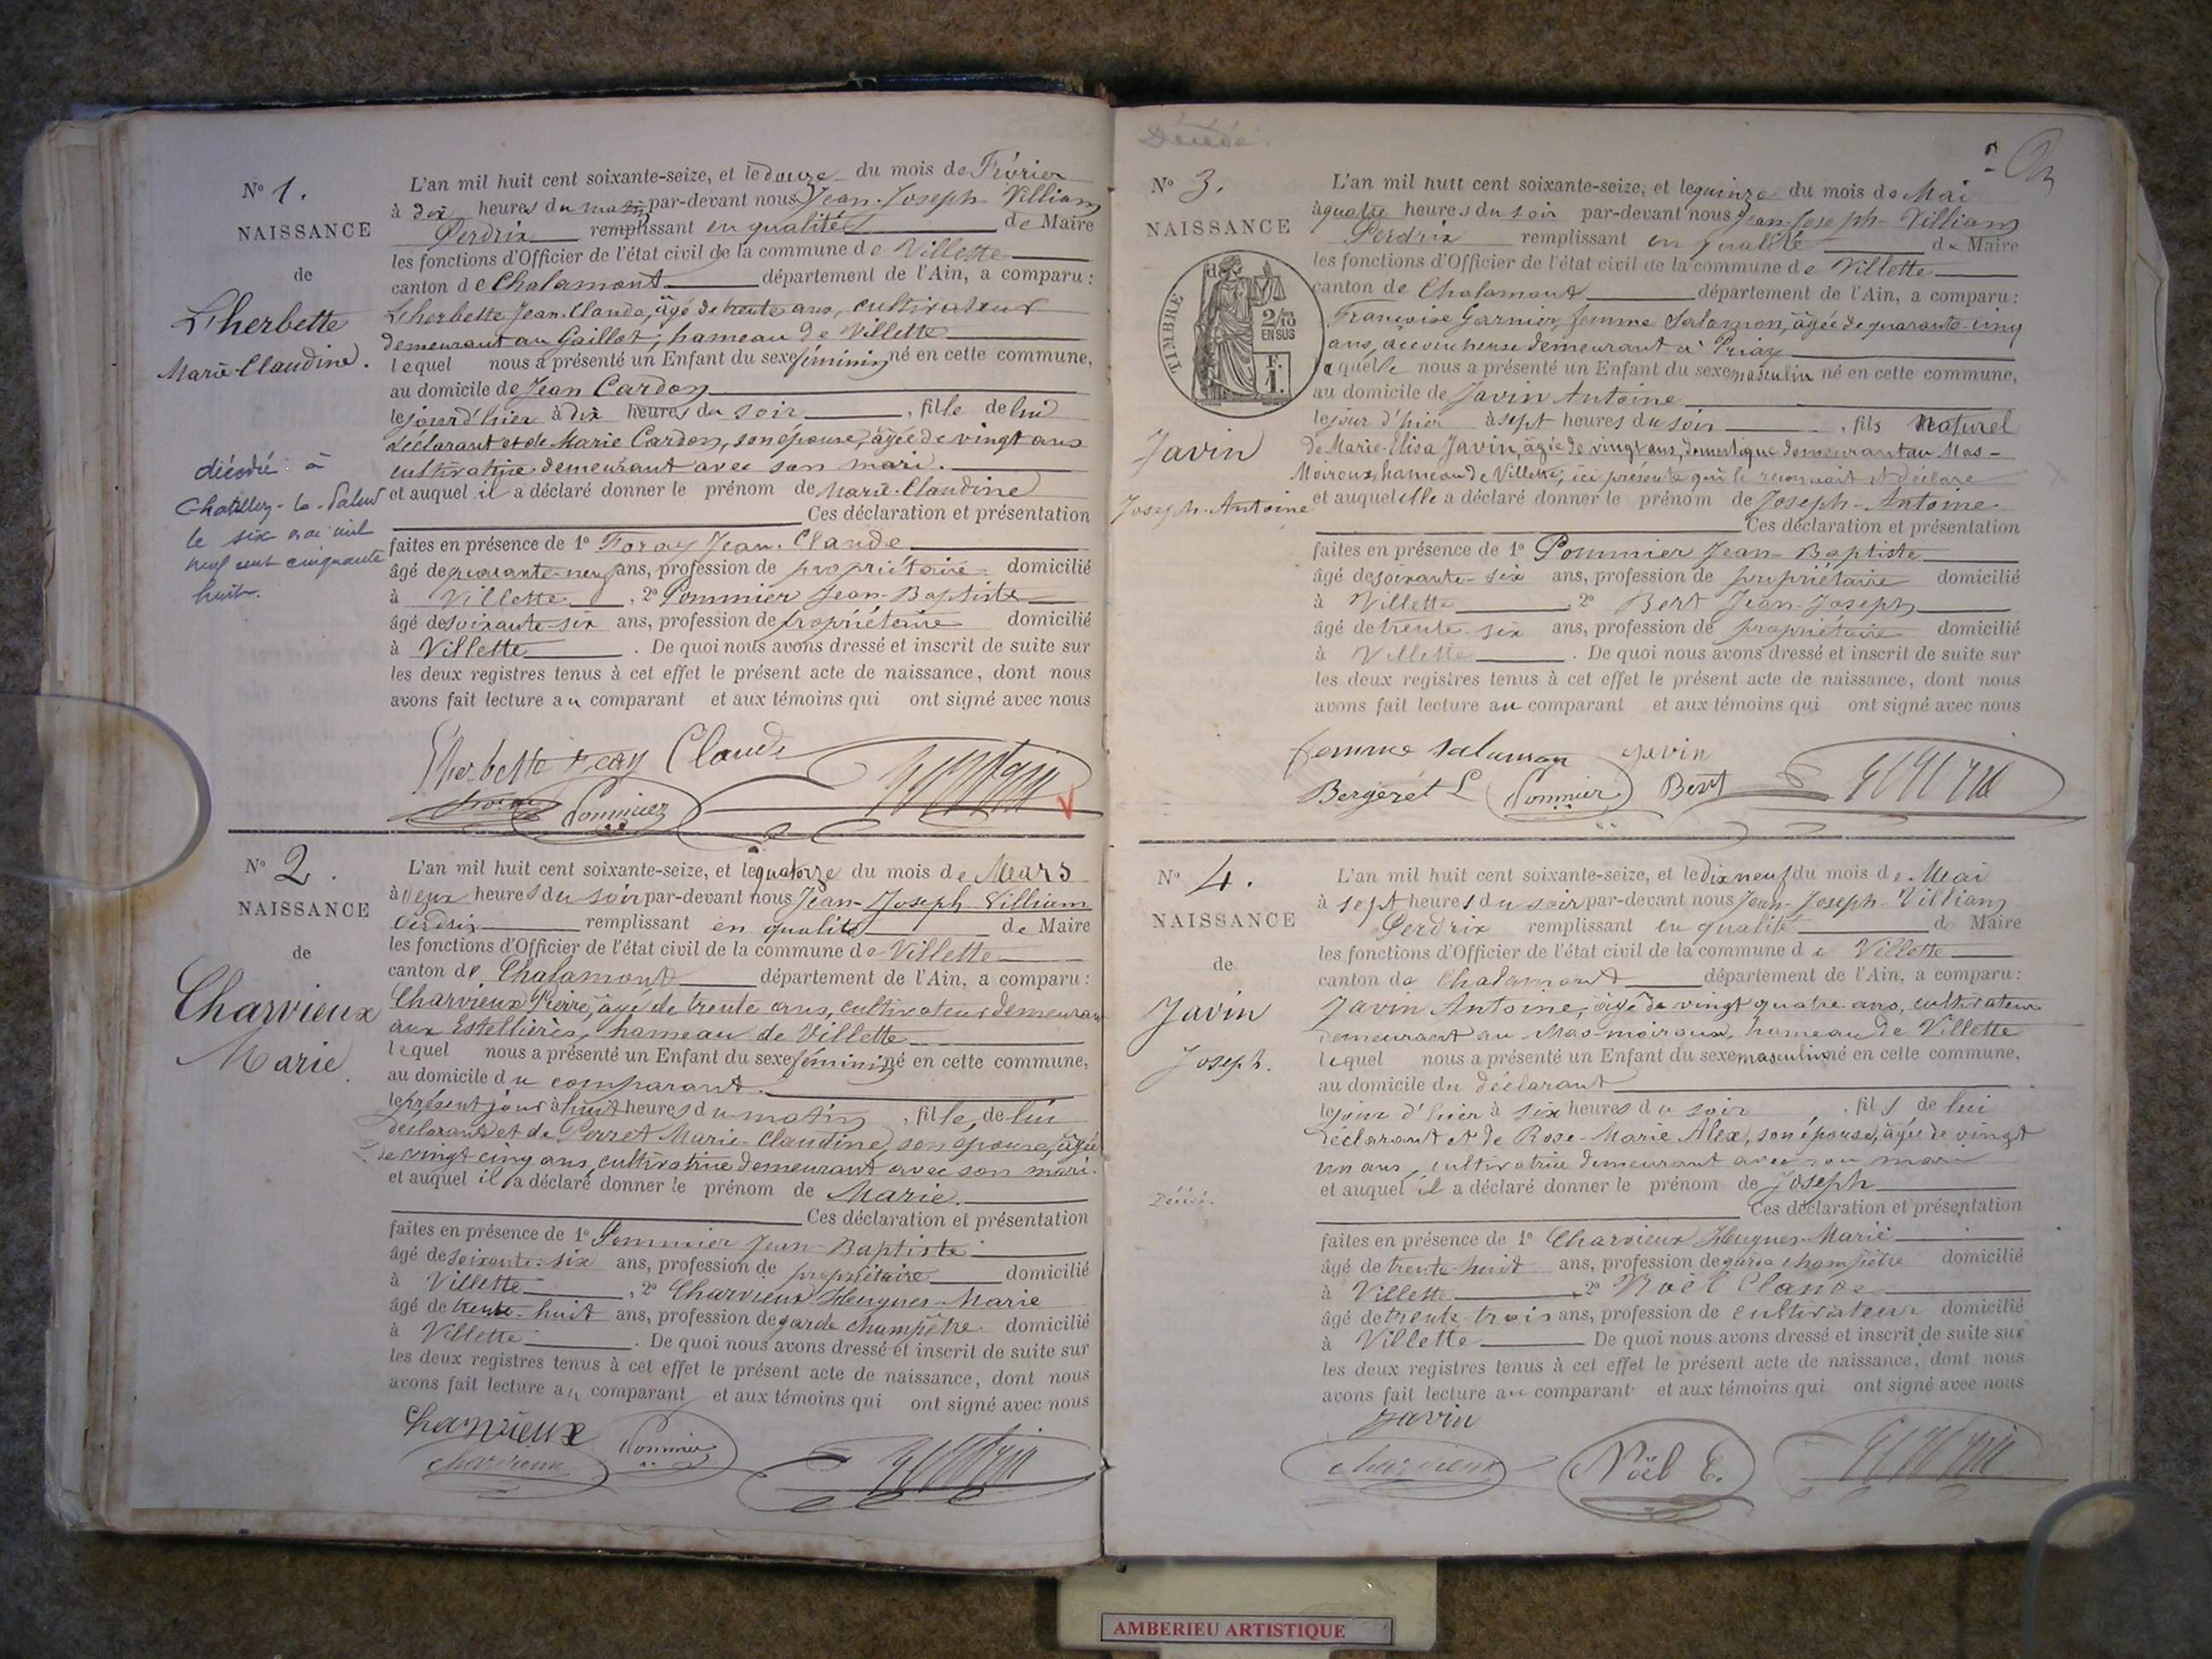 N° 1.
NAISSANCE
de
L'herbette
Marie-Claudine.
décédée à
Chatillon-la-Palud
le six mai mil
neuf cent cinquante
huit.
L'an mil huit cent soixante-seize, et le douze du mois de Février
à dix heures du matin par-devant nous Jean-Joseph Villiam
Perdrix remplissant en qualité de Maire
les fonctions d'Officier de l'état civil de la commune de Villette
canton de Chalamont département de l'Ain, a comparu :
L'herbette Jean-Claude, âgé de trente ans, cultivateur
demeurant au Gaillot, hameau de Villette
lequel nous a présenté un Enfant du sexe féminin né en cette commune,
au domicile de Jean Cardon
le jourd'hier à dix heures du soir , fille de lui
déclarant et de Marie Cardon, son épouse, âgée de vingt ans
cultivatrice demeurant avec son mari.
et auquel il a déclaré donner le prénom de Marie-Claudine
Ces déclaration et présentation
faites en présence de 1° Foray Jean-Claude
âgé de quarante-neuf ans, profession de propriétaire domicilié
à Villette , 2° Pommier Jean-Baptiste
âgé de soixante-six ans, profession de propriétaire domicilié
à Villette . De quoi nous avons dressé et inscrit de suite sur
les deux registres tenus à cet effet le présent acte de naissance, dont nous
avons fait lecture au comparant et aux témoins qui ont signé avec nous
L'herbette Jean Claude
Foray Pommier
N° 2.
NAISSANCE
de
Charvieux
Marie.
L'an mil huit cent soixante-seize, et le quatorze du mois de Mars
à deux heures du soir par-devant nous Jean-Joseph Villiam
Perdrix remplissant en qualité de Maire
les fonctions d'Officier de l'état civil de la commune de Villette
canton de Chalamont département de l'Ain, a comparu :
Charvieux Pierre, âgé de trente ans, cultivateur demeurant
aux Estellières, hameau de Villette
lequel nous a présenté un Enfant du sexe féminin né en cette commune,
au domicile du comparant.
le présent jour à huit heures du matin , fille de lui
déclarant et de Perret Marie-Claudine, son épouse, âgée
de vingt cinq ans, cultivatrice demeurant avec son mari.
et auquel il a déclaré donner le prénom de Marie.
Ces déclaration et présentation
faites en présence de 1° Pommier Jean-Baptiste
âgé de soixante-six ans, profession de propriétaire domicilié
à Villette , 2° Charvieux Hugues-Marie
âgé de trente-huit ans, profession de garde champêtre domicilié
à Villette . De quoi nous avons dressé et inscrit de suite sur
les deux registres tenus à cet effet le présent acte de naissance, dont nous
avons fait lecture au comparant et aux témoins qui ont signé avec nous
Charvieux Pommier
Charvieux
Décédé.
N° 3.
NAISSANCE
TIMBRE
2/10
EN SUS
F.
1.
Javin
Joseph-Antoine
L'an mil huit cent soixante-seize, et le quinze du mois de Mai
à quatre heures du soir par-devant nous Jean-Joseph-Villiam
Perdrix remplissant en qualité de Maire
les fonctions d'Officier de l'état civil de la commune de Villette
canton de Chalamont département de l'Ain, a comparu :
Françoise Garnier, femme Salamon, âgée de quarante-cinq
ans, accoucheuse demeurant à Priay
laquelle nous a présenté un Enfant du sexe masculin né en cette commune,
au domicile de Javin Antoine
le jour d'hier à sept heures du soir , fils naturel
de Marie-Elisa Javin, âgée de vingt ans, domestique demeurant au Mas-
Moiroux, hameau de Villette, ici présente qui le reconnait et déclare
et auquel elle a déclaré donner le prénom de Joseph-Antoine
Ces déclaration et présentation
faites en présence de 1° Pommier Jean-Baptiste
âgé de soixante-six ans, profession de propriétaire domicilié
à Villette , 2° Bert Jean-Joseph
âgé de trente-six ans, profession de propriétaire domicilié
à Villette . De quoi nous avons dressé et inscrit de suite sur
les deux registres tenus à cet effet le présent acte de naissance, dont nous
avons fait lecture au comparant et aux témoins qui ont signé avec nous
femme salamon javin
Bergeret L Pommier Bert
N° 4.
NAISSANCE
de
Javin
Joseph.
Décédé.
L'an mil huit cent soixante-seize, et le dix neuf du mois de Mai
à sept heures du soir par-devant nous Jean-Joseph-Villiam
Perdrix remplissant en qualité de Maire
les fonctions d'Officier de l'état civil de la commune de Villette
canton de Chalamont département de l'Ain, a comparu :
Javin Antoine, âgé de vingt quatre ans, cultivateur
demeurant au Mas-moiroux, hameau de Villette
lequel nous a présenté un Enfant du sexe masculin né en cette commune,
au domicile du déclarant
le jour d'hier à six heures du soir , fils de lui
déclarant et de Rose-Marie Alex, son épouse, âgée de vingt
un ans, cultivatrice demeurant avec son mari
et auquel il a déclaré donner le prénom de Joseph
Ces déclaration et présentation
faites en présence de 1° Charvieux Hugues-Marie
âgé de trente-huit ans, profession de garde champêtre domicilié
à Villette , 2° Noël Claude
âgé de trente-trois ans, profession de cultivateur domicilié
à Villette De quoi nous avons dressé et inscrit de suite sur
les deux registres tenus à cet effet le présent acte de naissance, dont nous
avons fait lecture au comparant et aux témoins qui ont signé avec nous
Javin
Charvieux Noël C.
AMBERIEU ARTISTIQUE